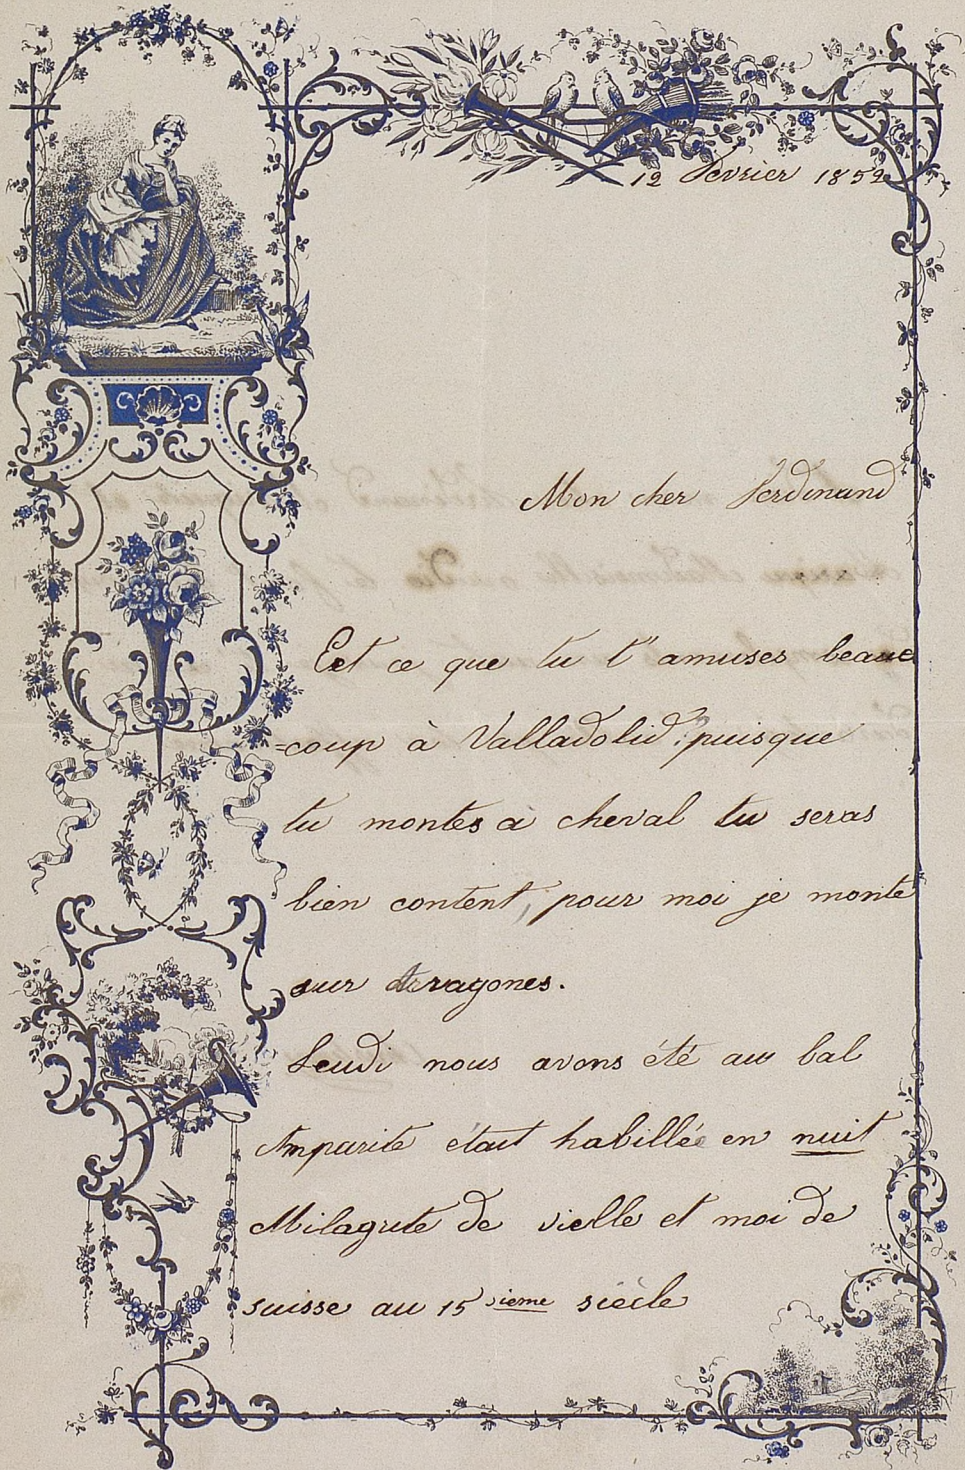 12 Fevrier 1852
Mon cher Ferdinand
Est ce que tu t'amuses beau
=coup à Valladolid? puisque
tu montes a cheval tu seras
bien content, pour moi je monte
sur Arragones.
Jeudi nous avons été au bal
Amparite était habillée en nuit
Milagrite de vielle et moi de
suisse au 15 sieme siècle